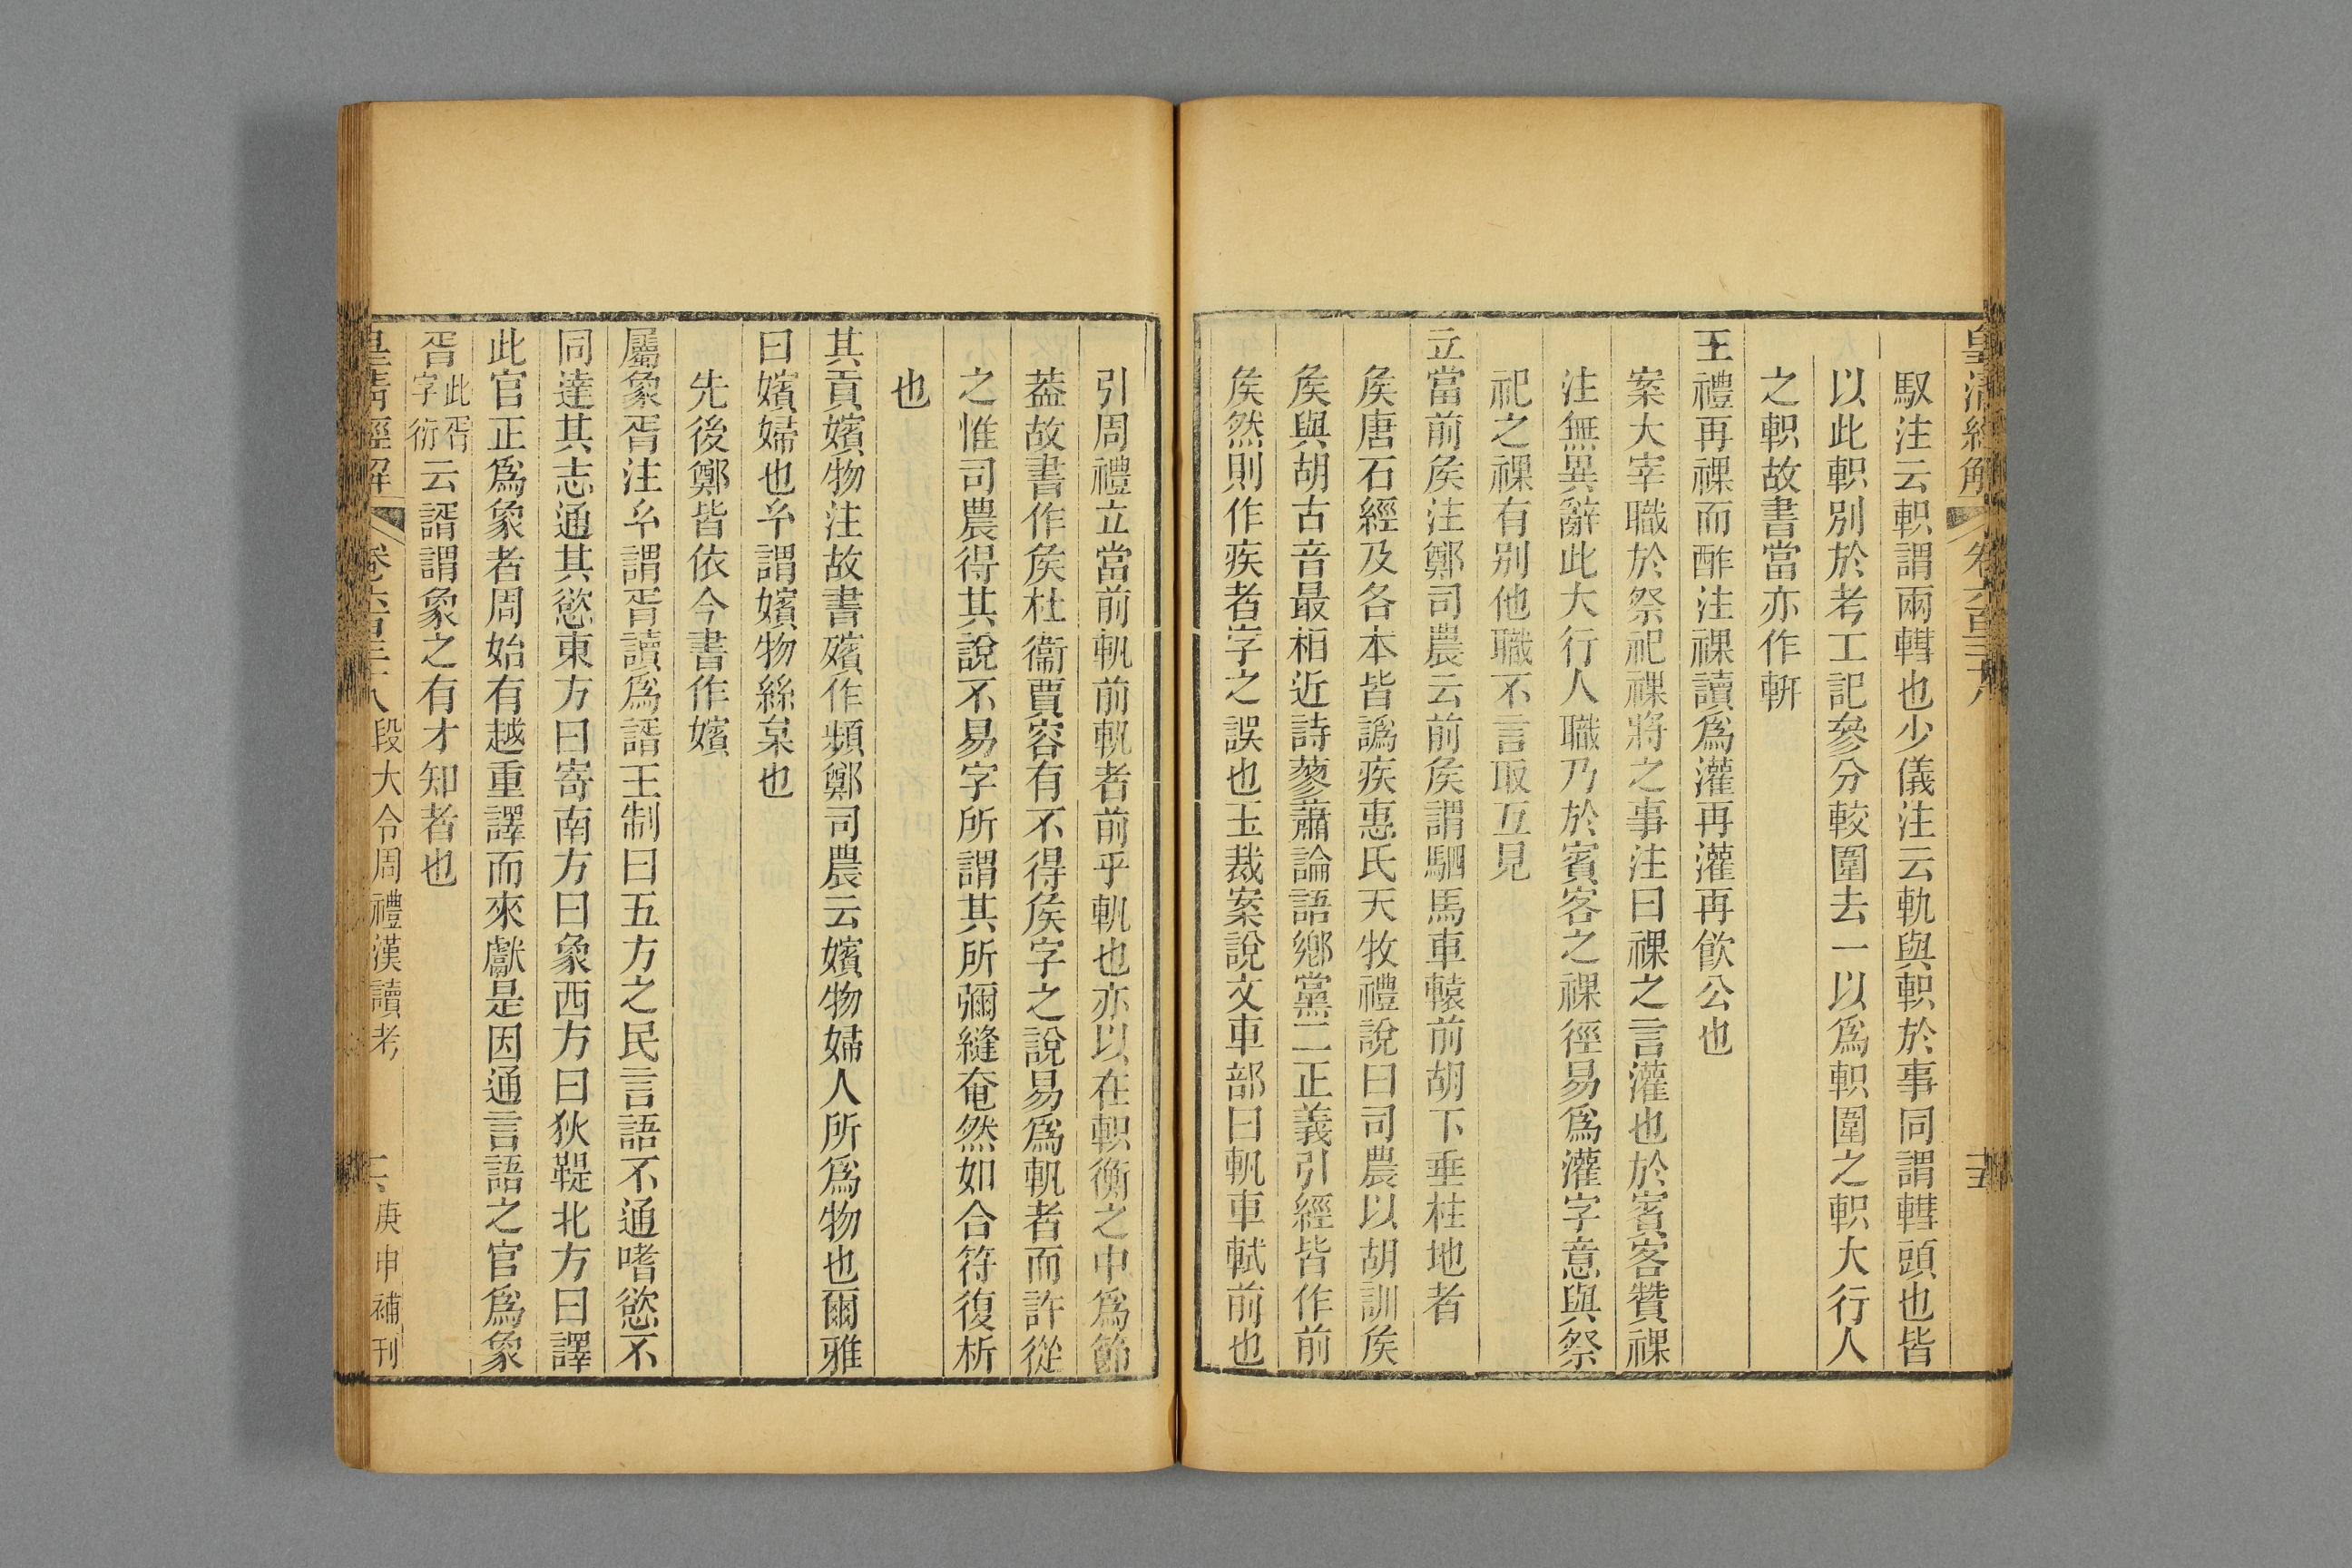 皇清經解 卷六百三十八 十五
馭注云軹謂兩轊也少儀注云軌與軹於事同謂轊頭也皆
以此軹別於考工記參分較圍去一以爲軹圍之軹大行人
之軹故書當亦作軿
王禮再祼而酢注祼讀爲灌再灌再飮公也
案大宰職於祭祀祼將之事注曰祼之言灌也於賓客贊祼
注無異辭此大行人職乃於賓客之祼徑易爲灌字意與祭
祀之祼有别他職不言取互見
立當前矦注鄭司農云前矦謂駟馬車轅前胡下垂柱地者
矦唐石經及各本皆譌疾惠氏天牧禮說曰司農以胡訓矦
矦與胡古音最相近詩蓼蕭論語鄉黨二正義引經皆作前
矦然則作疾者字之誤也玉裁案說文車部曰軓車軾前也
引周禮立當前軓前軓者前乎軓也亦以在軹衡之中爲節
葢故書作矦杜衞賈容有不得矦字之說易爲軓者而許從
之惟司農得其說不易字所謂其所彌縫奄然如合符復析
也
其貢嬪物注故書嬪作頻鄭司農云嬪物婦人所爲物也爾雅
曰嬪婦也𤣥謂嬪物絲枲也
先後鄭皆依今書作嬪
屬象胥注𤣥謂胥讀爲諝王制曰五方之民言語不通嗜慾不
同達其志通其慾東方曰寄南方曰象西方曰狄鞮北方曰譯
此官正爲象者周始有越重譯而來獻是因通言語之官爲象
胥此胥字衍云諝謂象之有才知者也
皇清經解 卷六百三十八 段大令周禮漢讀考 庚申補刊